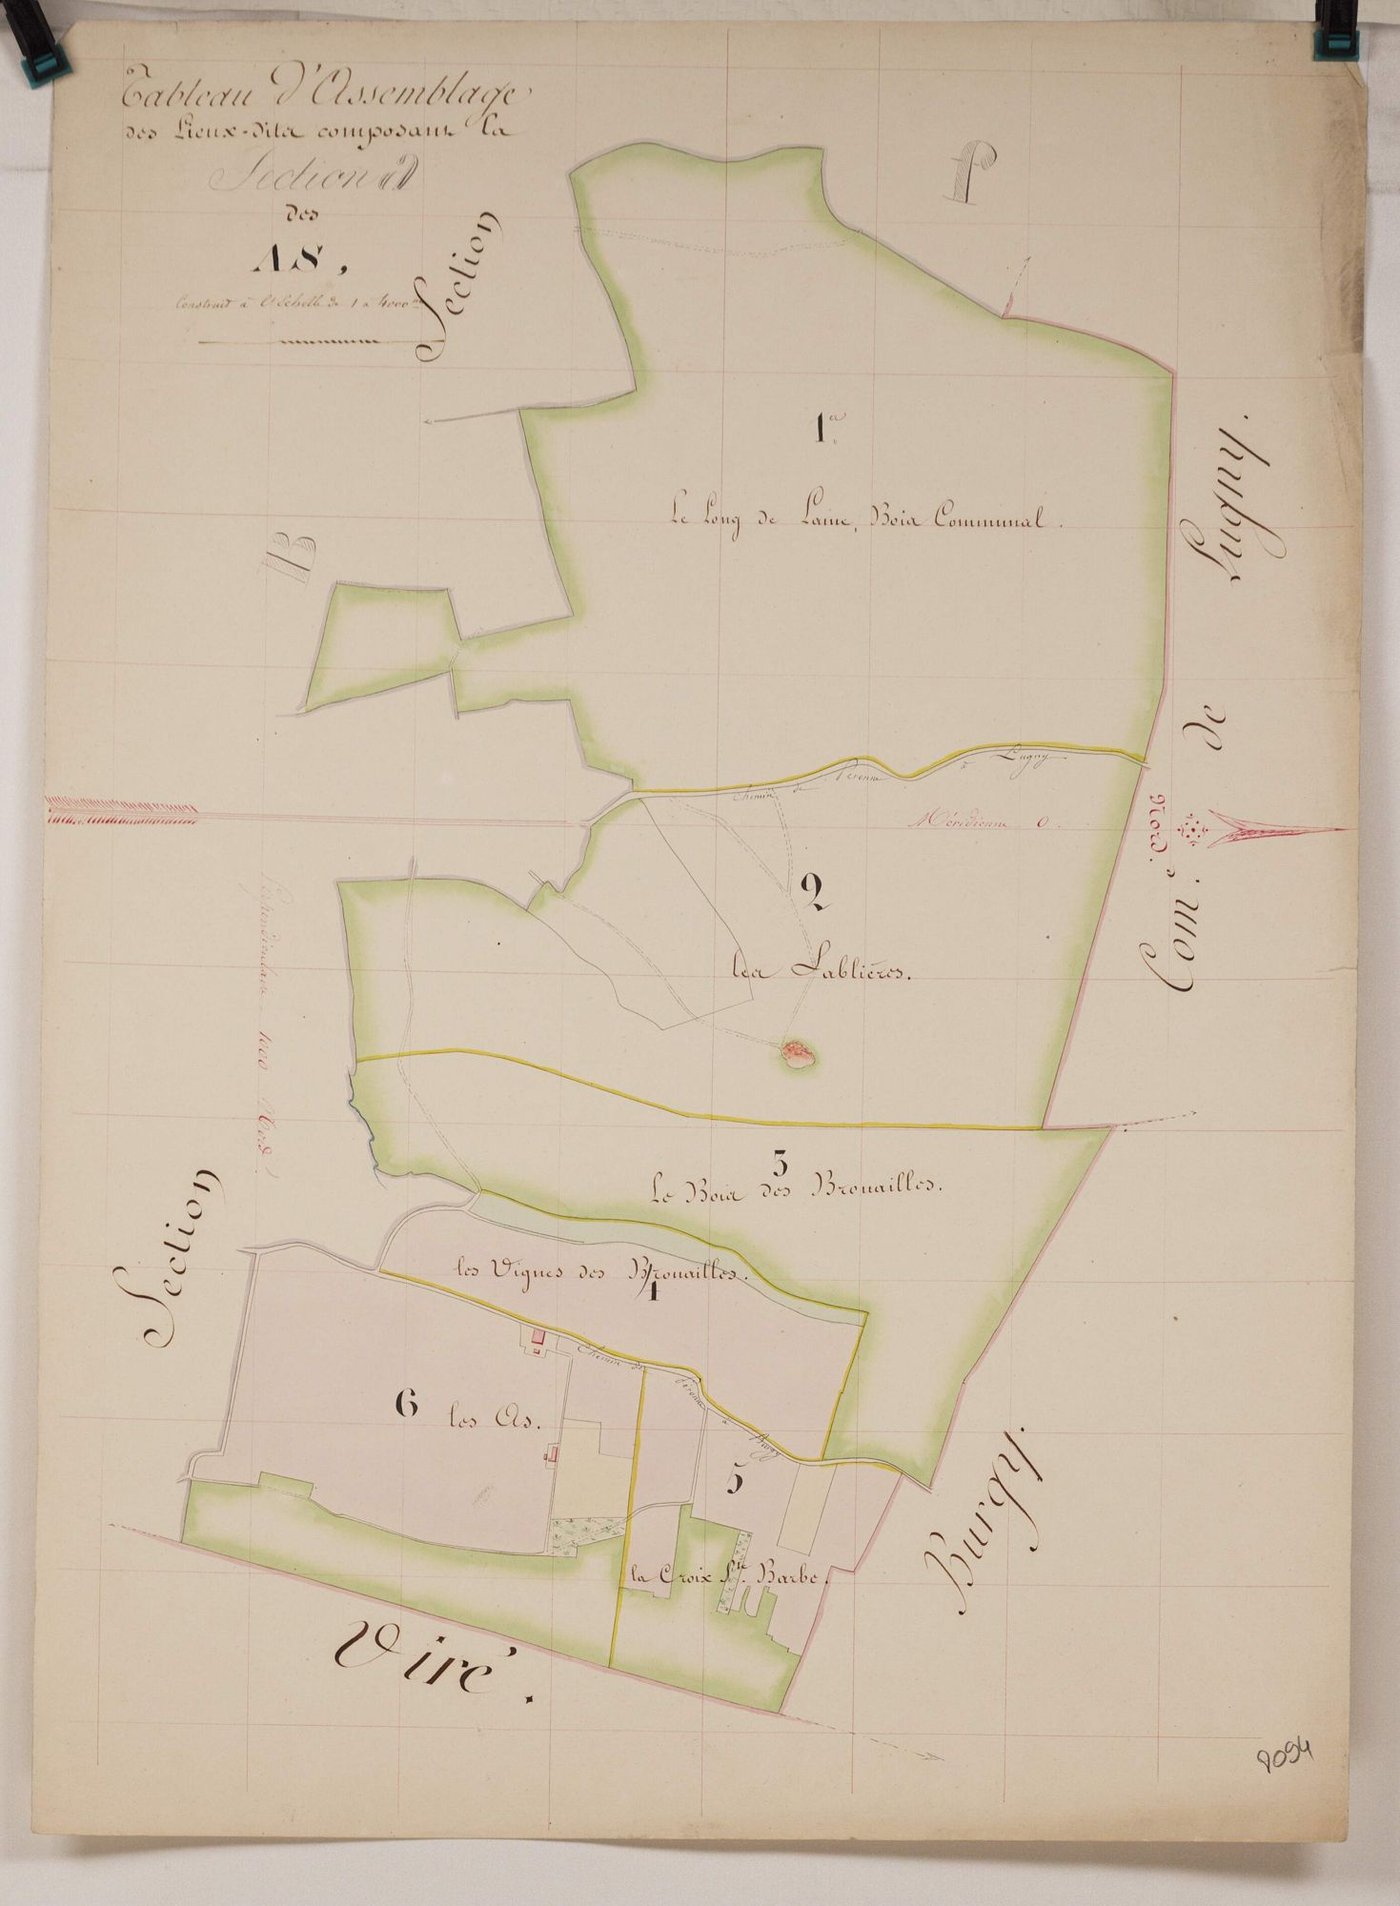 Tableau D'Assemblage
des Lieux-dits composant la
Section
des
AS,
Construit à l'Echelle de 1 à 4000
Section
B
P
1er
Le Long de Laine, Bois Communal.
Com.e de Lugny.
Chemin de Péronne à Lugny
Méridienne 0.
Nord.
2
les Sablières.
Perpendiculaire 1000 Nord
3
Le Bois des Brouailles.
Section
les Vignes des Brouailles.
4
Chemin de Péronne à Burgy
6
les As.
5
la Croix Ste. Barbe.
Burgy.
Viré.
8094